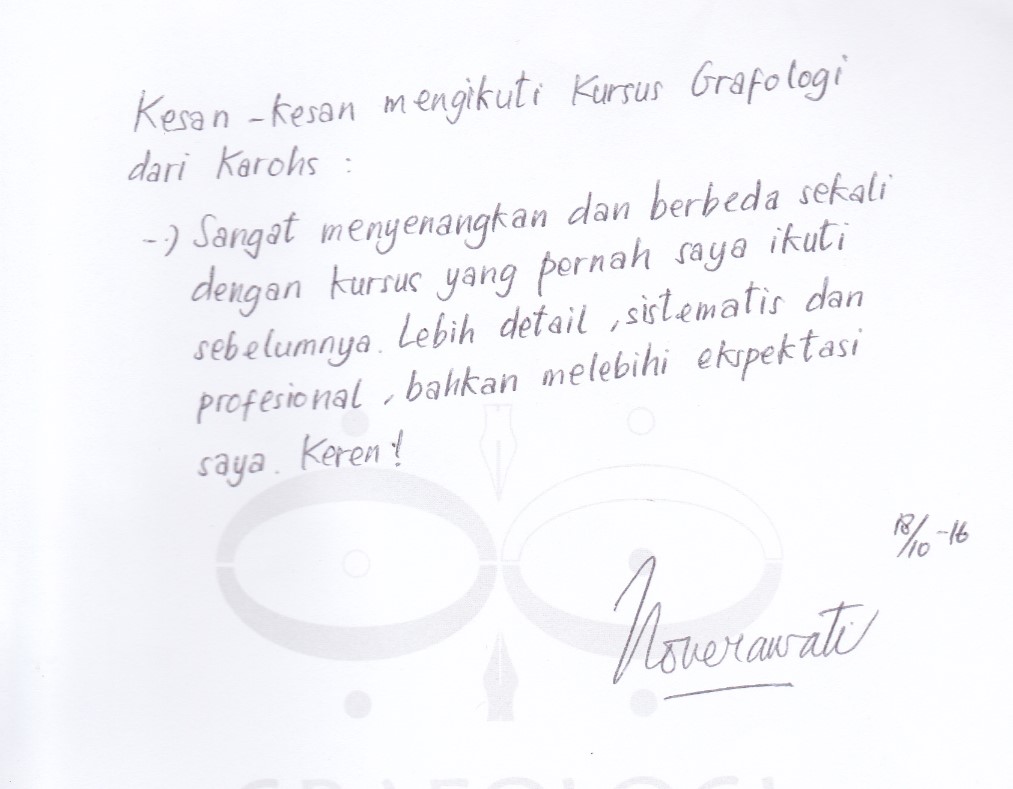 Kesan-kesan mengikuti Kursus Grafologi
dari Karohs :
-) Sangat menyenangkan dan berbeda sekali
dengan kursus yang pernah saya ikuti
sebelumnya. Lebih detail, sistematis dan
profesional, bahkan melebihi ekspektasi
saya. Keren!
18/10-16
Noverawati
GRAFOLOGI